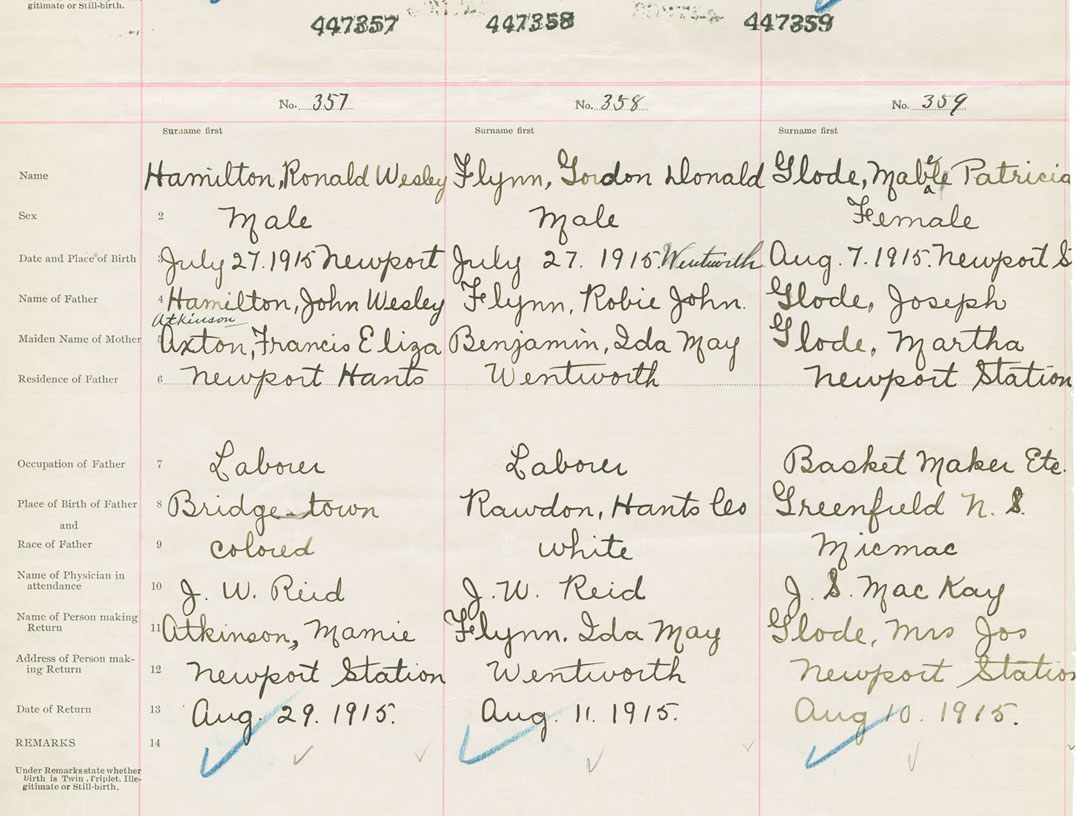 gitimate or Still-birth.
447357 447358 447359
No. 357 No. 358 No. 359
Surname first Surname first Surname first
Name Hamilton, Ronald Wesley Flynn, Gordon Donald Glode, Mable Patricia
Sex 2 Male Male Female
Date and Place of Birth 3 July 27.1915 Newport July 27. 1915. Wentworth Aug. 7.1915. Newport S
Name of Father 4 Hamilton, John Wesley Flynn, Robie John. Glode, Joseph
Atkinson
Maiden Name of Mother 5 Axton, Francis Eliza Benjamin, Ida May Glode, Martha
Residence of Father 6 Newport Hants Wentworth Newport Station
Occupation of Father 7 Laborer Laborer Basket Maker Etc.
Place of Birth of Father 8 Bridge-town Rawdon, Hants Co Greenfield N. S.
and
Race of Father 9 Colored White Micmac
Name of Physician in
attendance 10 J. W. Reid J. W. Reid J. S. MacKay
Name of Person making
Return 11 Atkinson, Mamie Flynn. Ida May Glode, Mrs Jos
Address of Person mak-
ing Return 12 Newport Station Wentworth Newport Station
Date of Return 13 Aug. 29. 1915. Aug. 11. 1915. Aug 10. 1915.
REMARKS 14
Under Remarks state whether
birth is Twin, Triplet, Ille-
gitimate or Still-birth.